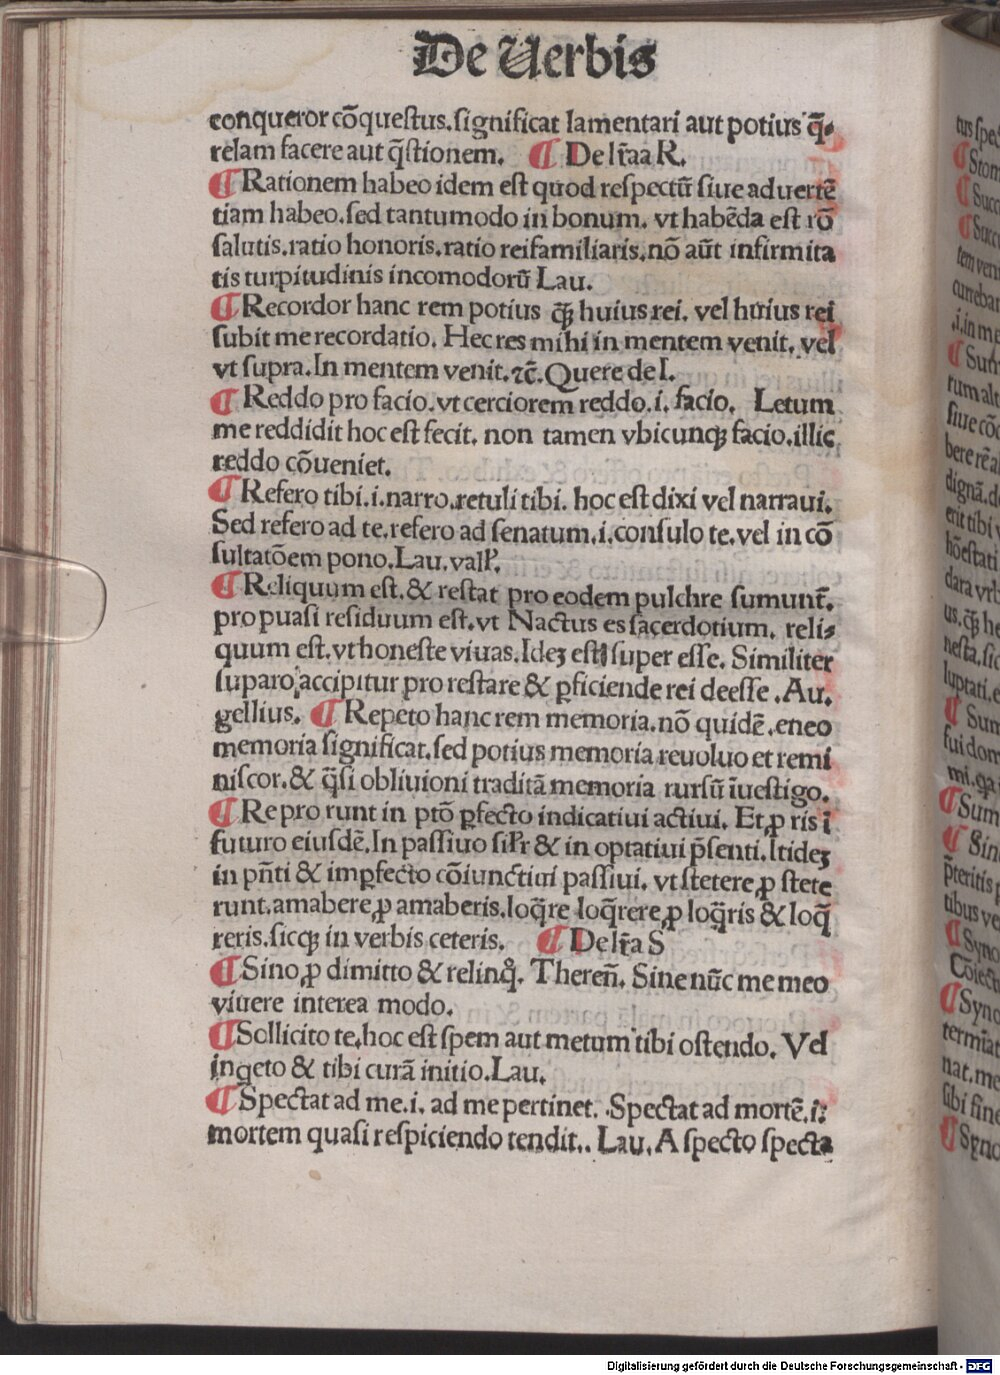 De Uerbis
conqueror cōqueſtus.ſignificat lamentari aut potius q̄-
relam facere aut q̄ſtionem. ¶ De lr̄aa R.
¶ Rationem habeo idem eſt quod reſpectū ſiue aduertē
tiam habeo.ſed tantumodo in bonum. vt habēda eſt rō
ſalutis.ratio honoris.ratio reifamiliaris.nō aūt infirmita
tis turpitudinis incomodorū Lau.
¶ Recordor hanc rem potius q̄ꝫ huius rei. vel huius rei
ſubit me recordatio. Hec res mihi in mentem venit. vel
vt ſupra.In mentem venit.⁊c̄.Quere de I.
¶ Reddo pro facio.vt cerciorem reddo.i. facio. Letum
me reddidit hoc eſt fecit. non tamen vbicunqꝫ facio.illic
reddo cōueniet.
¶ Refero tibi.i.narro.retuli tibi. hoc eſt dixi vel narraui.
Sed refero ad te.refero ad ſenatum.i.conſulo te.vel in cō
ſultatōem pono.Lau.vall'.
¶ Reliquum eſt.& reſtat pro eodem pulchre ſumunt̄.
pro puaſi reſiduum eſt.vt Nactus es ſacerdotium. reli-
quum eſt.vt honeſte viuas.Ideꝫ eſt ſuper eſſe. Similiter
ſuparo accipitur pro reſtare & ꝑficiende rei deeſſe .Au.
gellius. ¶ Repeto hanc rem memoria.nō quidē .eneo
memoria ſignificat.ſed potius memoria reuoluo et remi
niſcor.& q̄ſi obliuioni traditā memoria rurſū īueſtigo.
¶ Re pro runt in ptō ꝑfecto indicatiui actiui. Et ꝓ ris ī
futuro eiuſdē.In paſſiuo ſil'r & in optatiui p̄ſenti.Itideꝫ
in pn̄ti & imꝑfecto cōiunctiui paſſiui. vt ſtetere ꝓ ſtete
runt.amabere ꝓ amaberis.loq̄re loq̄rere ꝓ loq̄ris & loq̄
reris.ſicqꝫ in verbis ceteris. ¶ De lr̄a S
¶ Sino ꝓ dimitto & relinqͦ. Theren̄. Sine nūc me meo
viuere interea modo.
¶ Sollicito te.hoc eſt ſpem aut metum tibi oſtendo. Vel
ingeto & tibi curā initio.Lau.
¶ Spectat ad me.i. ad me pertinet. Spectat ad mortē.i:
mortem quaſi reſpiciendo tendit.. Lau. A ſpecto ſpecta
Digitalisierung gefördert durch die Deutsche Forschungsgemeinschaft - DFG